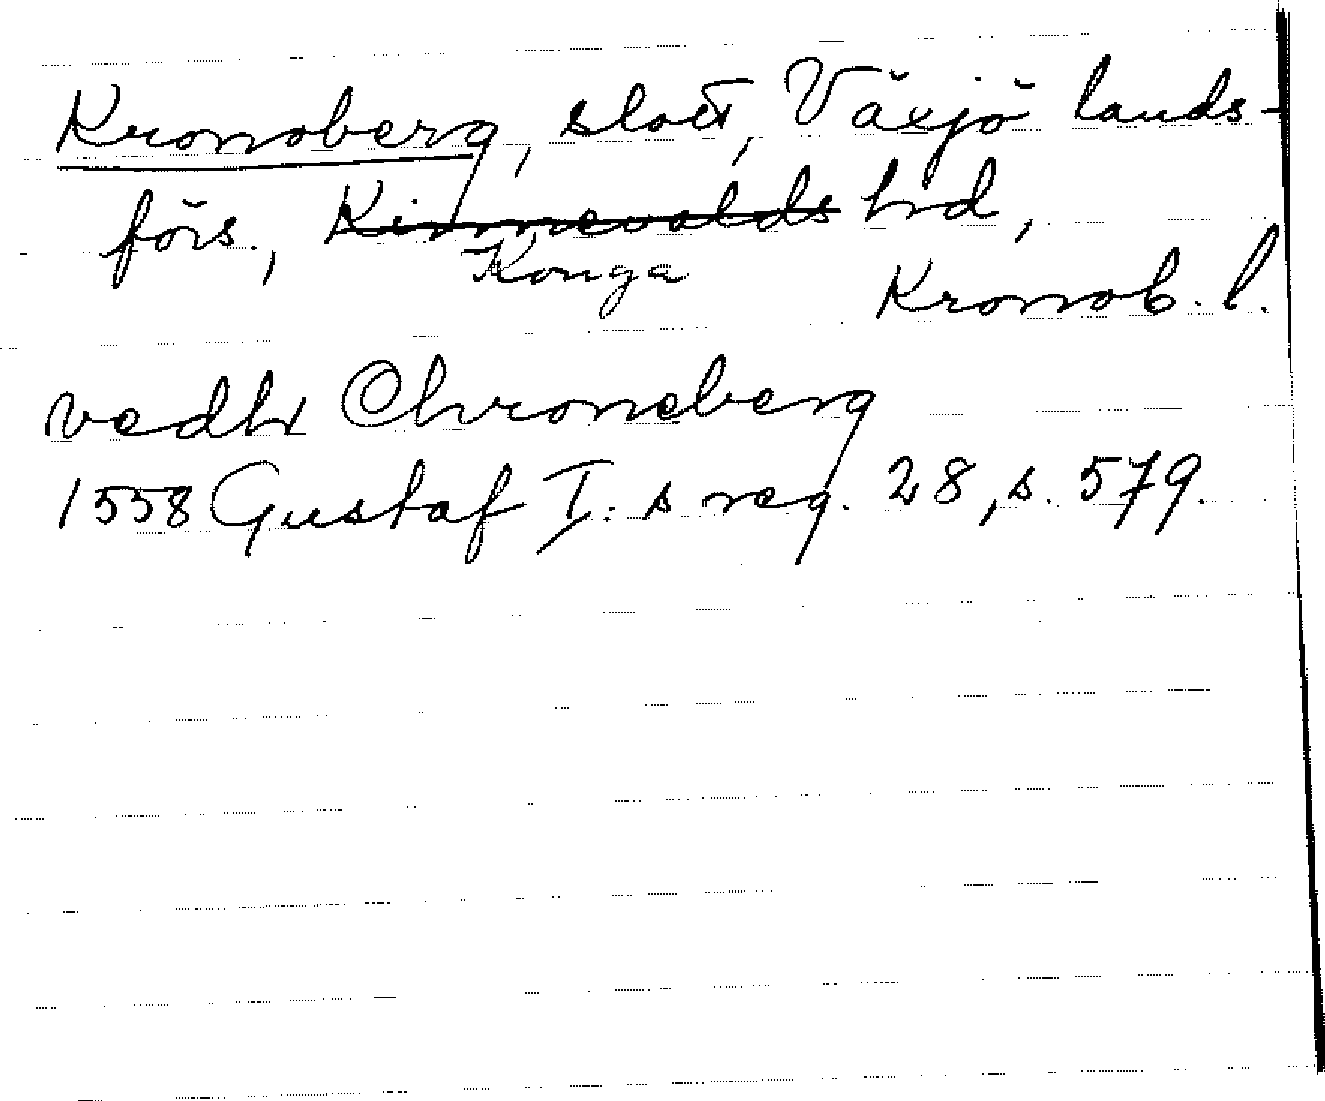 Kronoberg, slott, Växjö lands-
förs., Kinnevalds hrd,
Konga
Kronob. l.
vedh Chroneberg
1558 Gustaf I:s reg. 28, s. 579.